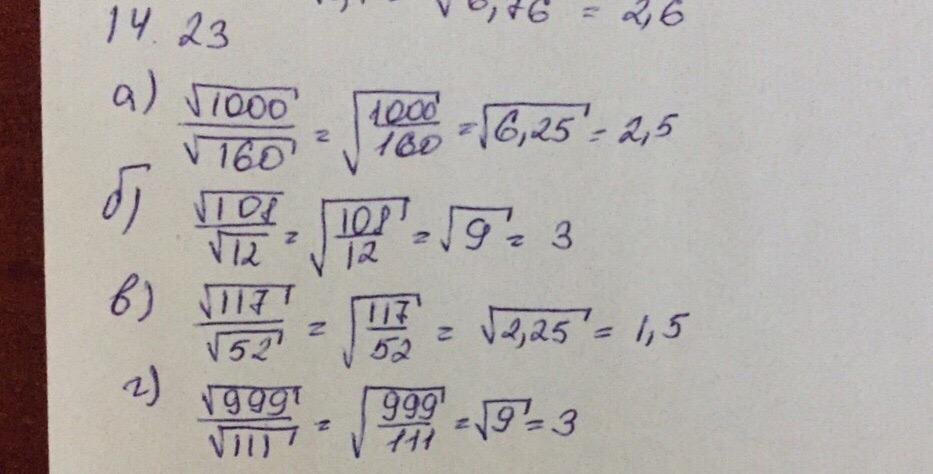 √6,76 = 2,6
14. 23
а) √1000/√160 = √(1000/160) = √6,25 = 2,5
б) √108/√12 = √(108/12) = √9 = 3
в) √117/√52 = √(117/52) = √2,25 = 1,5
г) √999/√111 = √(999/111) = √9 = 3